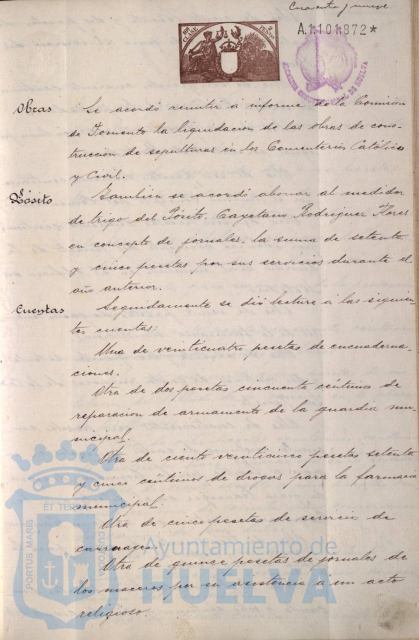 Cuarenta y nueve
A.1.101.872*
Obras
Se acordó remitir á informe de la Comisión
de Fomento la liquidación de las obras de cons-
trucción de sepulturas en los Cementerios Católico
y Civil.
Pósito
Tambien se acordó abonar al medidor
de trigo del Pósito, Cayetano Rodriguez Flores
en concepto de jornales, la suma de setenta
y cinco pesetas por sus servicios durante el
año anterior.
Cuentas
Seguidamente se dió lectura á las siguien-
tes cuentas:
Una de veinticuatro pesetas de encuaderna-
ciones.
Otra de dos pesetas cincuenta céntimos de
reparacion de armamento de la guardia mu-
nicipal.
Otra de ciento veinticinco pesetas setenta
y cinco céntimos de drogas para la farmacia
municipal.
Otra de cinco pesetas de servicio de
carruages.
Otra de quince pesetas de jornales de
los maceros por su asistencia á un acto
religioso.
PORTUS MARIS
ET TERR
Ayuntamiento de
HUELVA